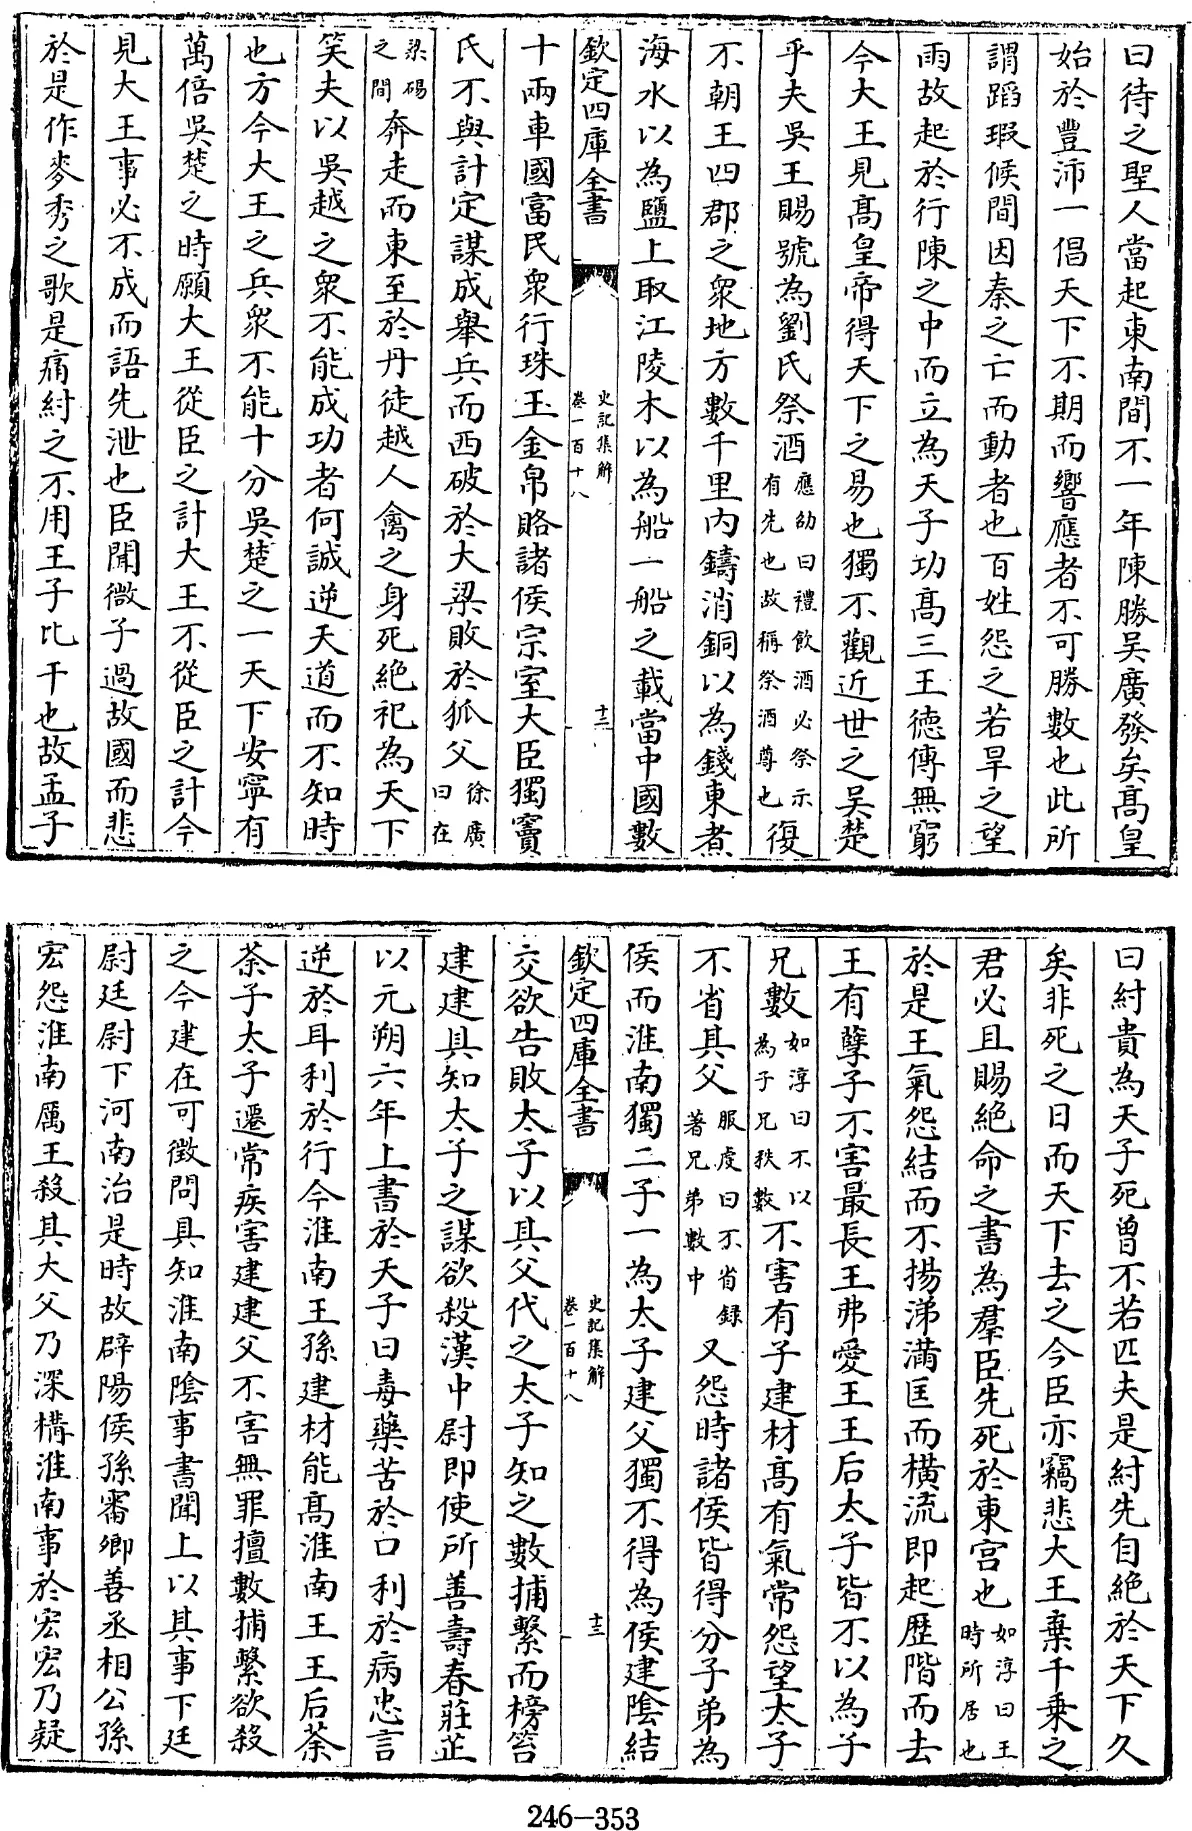 曰待之聖人當起東南間不一年陳勝吳廣發矣髙皇
始於豐沛一倡天下不期而響應者不可勝數也此所
謂蹈瑕候間因秦之亡而動者也百姓怨之若旱之望
雨故起於行陳之中而立為天子功髙三王德傳無窮
今大王見髙皇帝得天下之易也獨不觀近世之吳楚
乎夫吳王賜號為劉氏祭酒應劭曰禮飲酒必祭示有先也故稱祭酒尊也復
不朝王四郡之衆地方數千里内鑄消銅以為錢東煮
海水以為鹽上取江陵木以為船一船之載當中國數
欽定四庫全書
史記集解
卷一百十八
十二
十兩車國富民衆行珠玉金帛賂諸侯宗室大臣獨竇
氏不與計定謀成舉兵而西破於大梁敗於狐父徐廣曰在
梁碭之間奔走而東至於丹徒越人禽之身死絶祀為天下
笑夫以吳越之衆不能成功者何誠逆天道而不知時
也方今大王之兵衆不能十分吳楚之一天下安寧有
萬倍吳楚之時願大王從臣之計大王不從臣之計今
見大王事必不成而語先泄也臣聞微子過故國而悲
於是作麥秀之歌是痛紂之不用王子比干也故孟子
曰紂貴為天子死曾不若匹夫是紂先自絶於天下久
矣非死之日而天下去之今臣亦竊悲大王棄千乗之
君必且賜絶命之書為羣臣先死於東宫也如淳曰王時所居也
於是王氣怨結而不揚涕滿匡而横流即起歴階而去
王有孽子不害最長王弗愛王王后太子皆不以為子
兄數如淳曰不以為子兄秩數不害有子建材髙有氣常怨望太子
不省其父服䖍曰不省録著兄弟數中又怨時諸侯皆得分子弟為
侯而淮南獨二子一為太子建父獨不得為侯建隂結
欽定四庫全書
史記集解
卷一百十八
十三
交欲告敗太子以其父代之太子知之數捕繫而榜笞
建建具知太子之謀欲殺漢中尉即使所善壽春莊芷
以元朔六年上書於天子曰毒藥苦於口利於病忠言
逆於耳利於行今淮南王孫建材能髙淮南王王后荼
荼子太子遷常疾害建建父不害無罪擅數捕繫欲殺
之今建在可徵問具知淮南隂事書聞上以其事下廷
尉廷尉下河南治是時故辟陽侯孫審卿善丞相公孫
宏怨淮南厲王殺其大父乃深構淮南事於宏宏乃疑
246-353